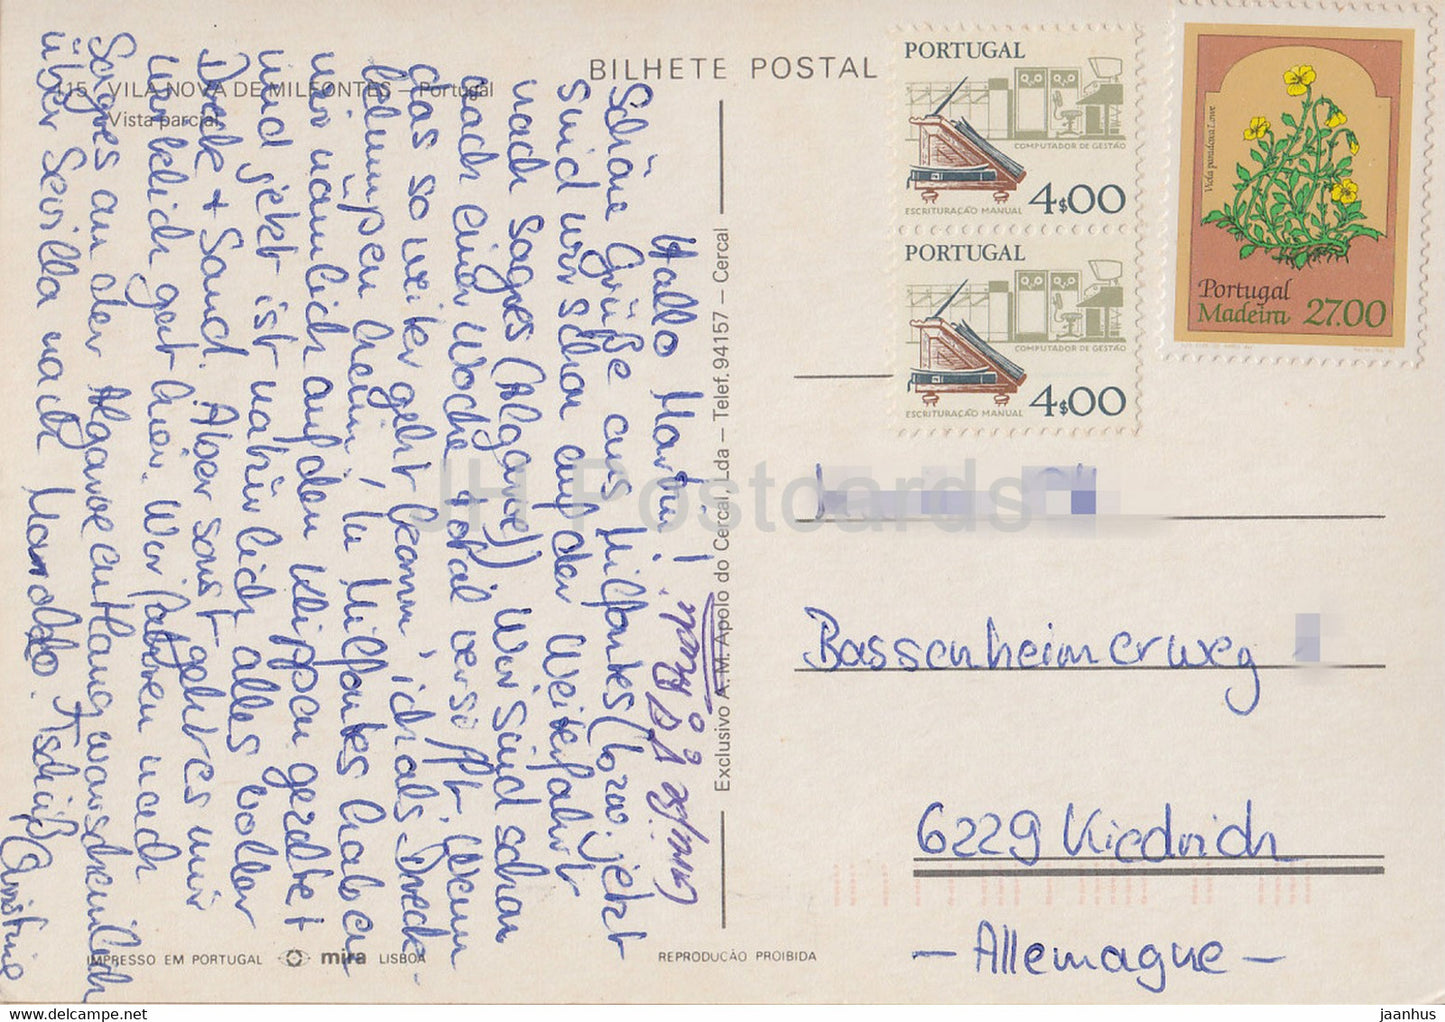 115 VILA NOVA DE MILFONTES — Portugal
Vista parcial
BILHETE POSTAL
Hallo Martin!
Schöne Grüße aus Milfontes (bzw. jetzt
sind wir schon auf der Weiterfahrt
nach Sagres (Algarve)) Wir sind schon
nach einer Woche total versifft. Wenn
das so weiter geht kann ich als Dreck-
klumpen heim, in Milfontes haben
wir nämlich auf den Klippen gezeltet
und jetzt ist natürlich alles voller
Dreck + Sand. Aber sonst geht es mir
wirklich gut hier. Wir fahren nach
Sagres an der Algarve entlang warscheinlich
über Sevilla nach Marokko. Tschüß Christine
Exclusivo A. M. Apolo do Cercal, Lda — Telef. 94157 — Cercal
IMPRESSO EM PORTUGAL mira LISBOA
REPRODUÇÃO PROIBIDA
PORTUGAL
COMPUTADOR DE GESTÃO
ESCRITURAÇÃO MANUAL
4$00
PORTUGAL
COMPUTADOR DE GESTÃO
ESCRITURAÇÃO MANUAL
4$00
Viola paradoxa Lowe
Portugal
Madeira 27.00
Bassenheimerweg
6229 Kiedrich
- Allemagne -
JH Postcards
jaanhus.com